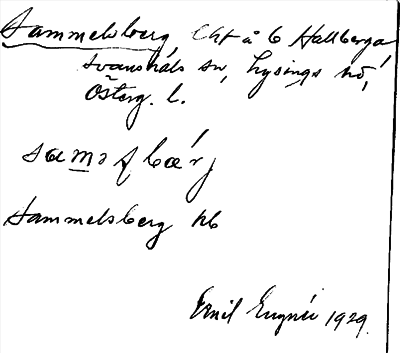 Sammelsberg Lht å 6 Hallberga
Svanshals sn, Lysings hd,
Österg. l.
Sammelsberg hb
Emil Eugnér 1929.